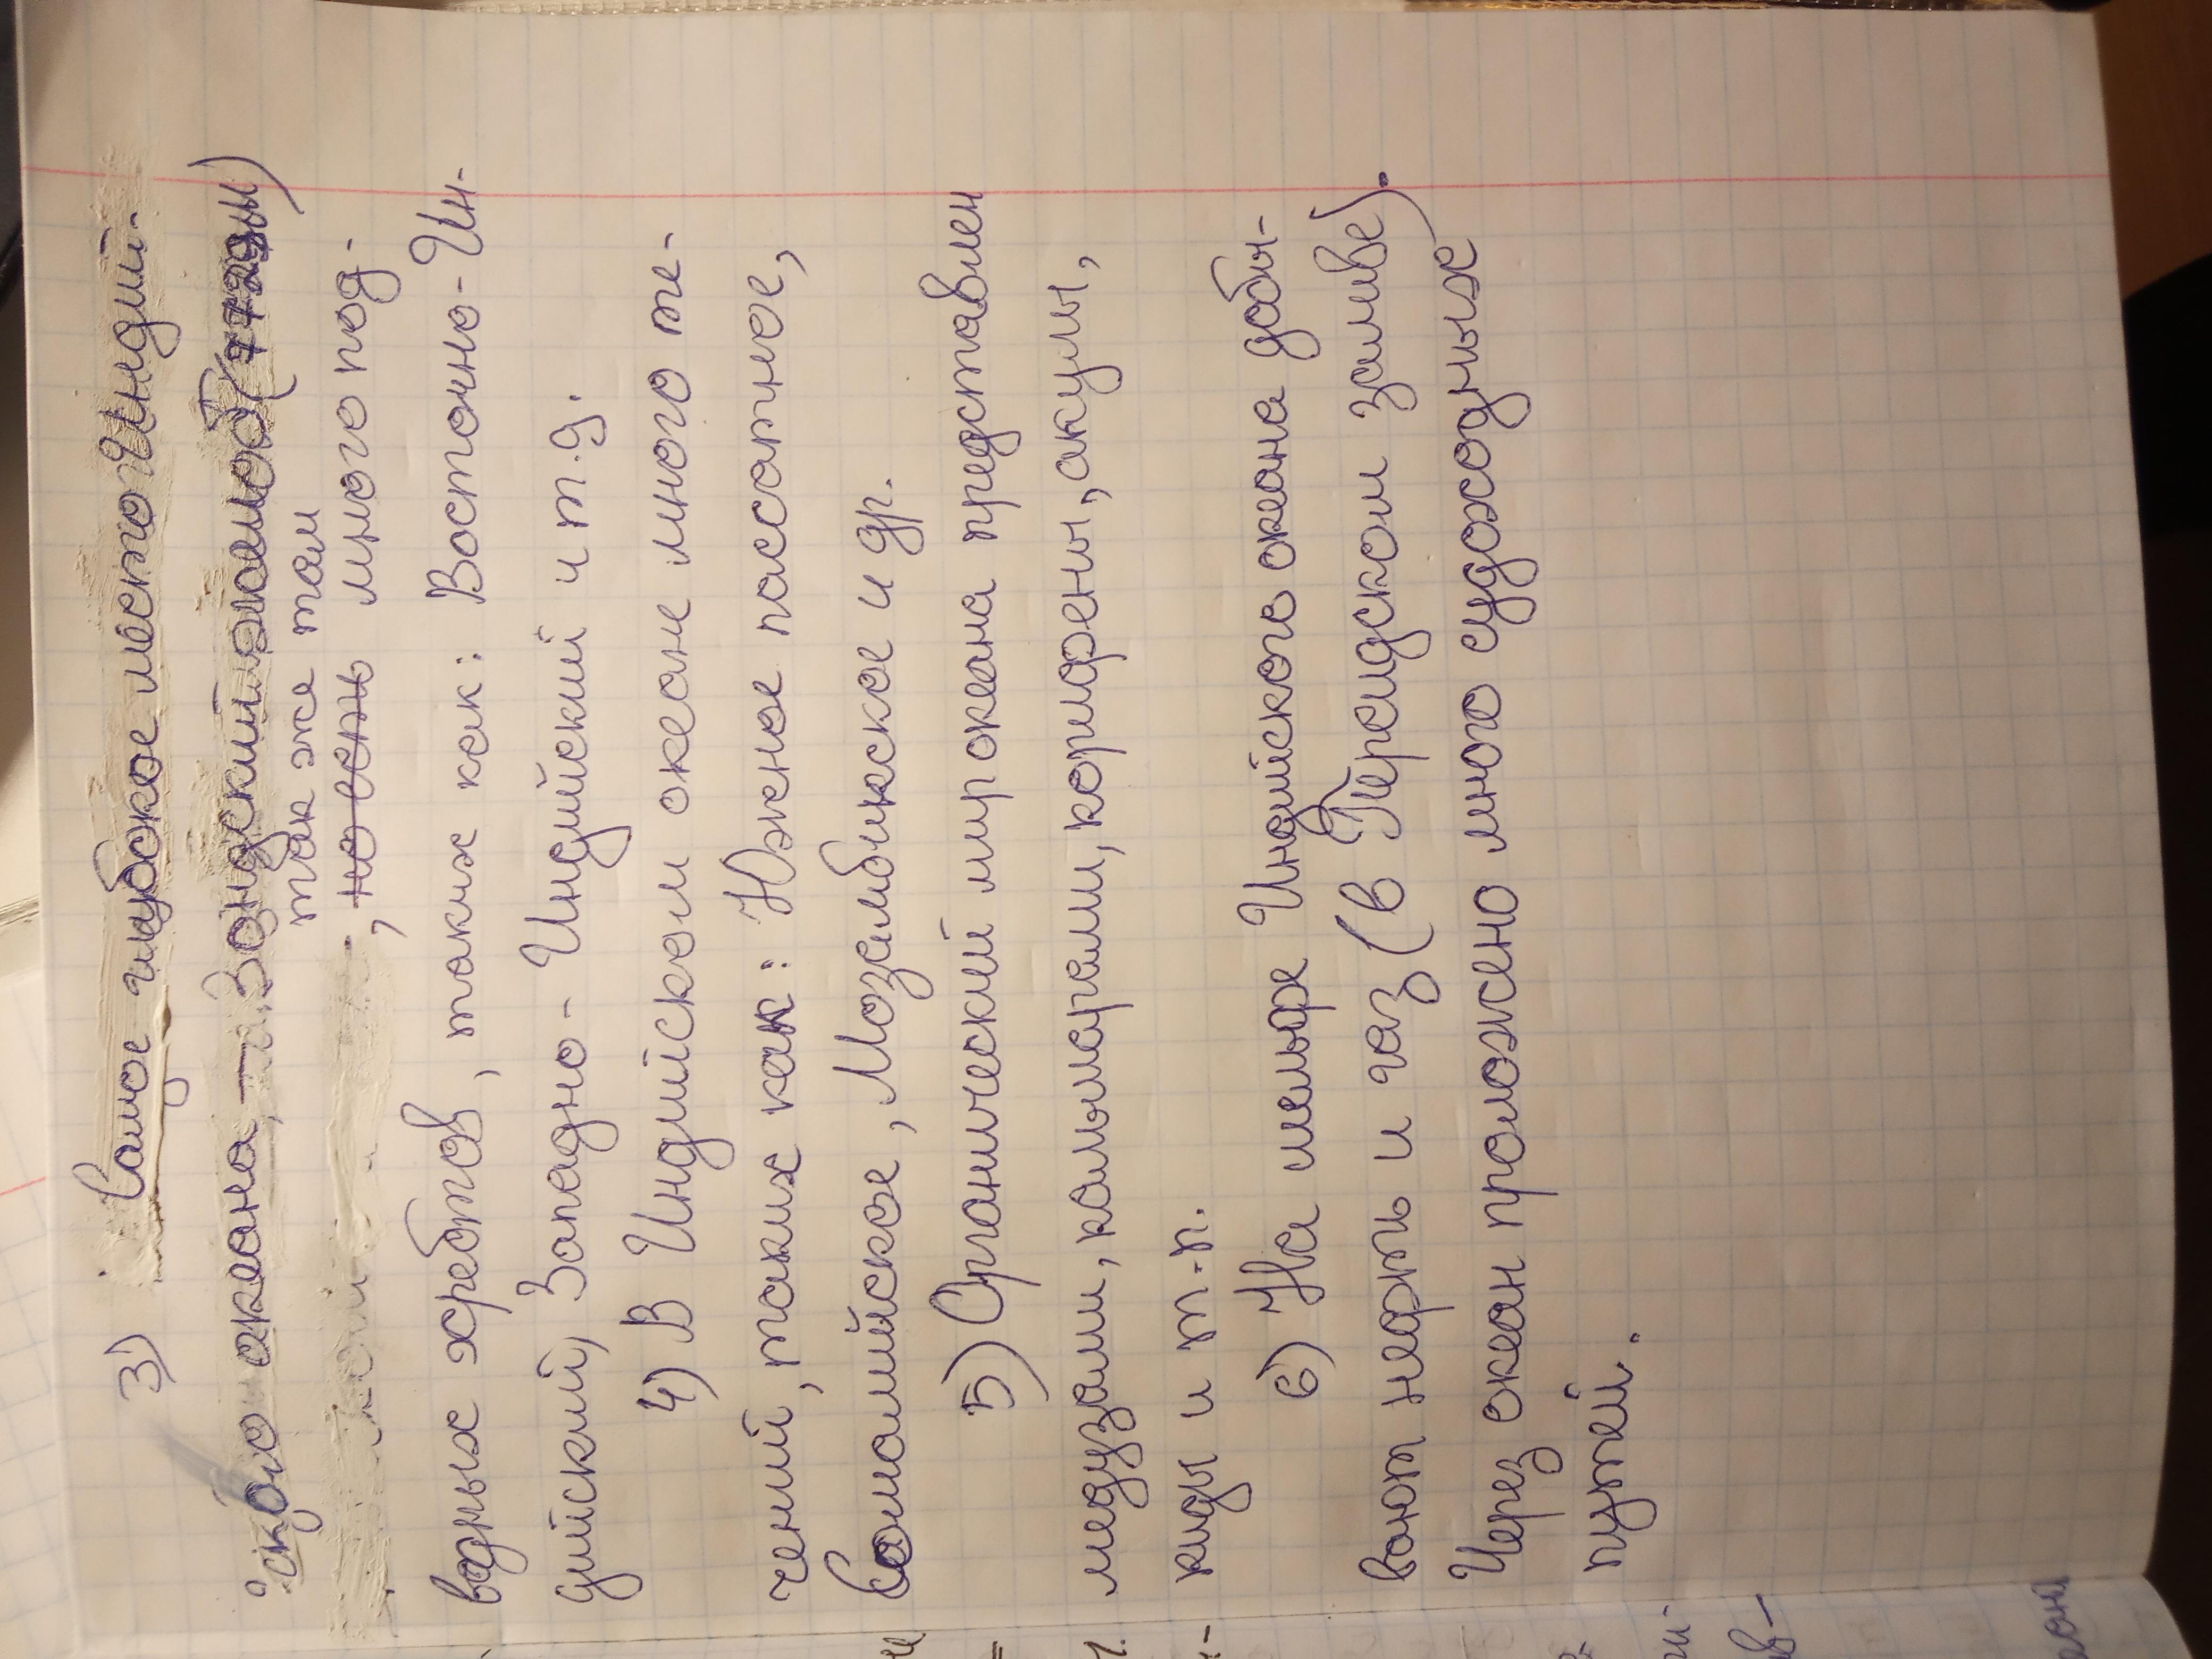 3) Самое глубокое место Индий-
ского океана, - Зондский желоб (7729м)
так же там
, но есть много под-
водных хребтов, таких как: Восточно-Ин-
дийский, Западно-Индийский и т.д.
4) В Индийском океане много те-
чений, таких как: Южное пассатное,
Сомалийское, Мозамбикское и др.
5) Органический мир океана представлен
медузами, кальмарами, корифены, акулы,
киды и т.п.
6) На шельфе Индийского океана добы-
вают нефть и газ (в Персидском заливе).
Через океан проложено много судоходных
путей.